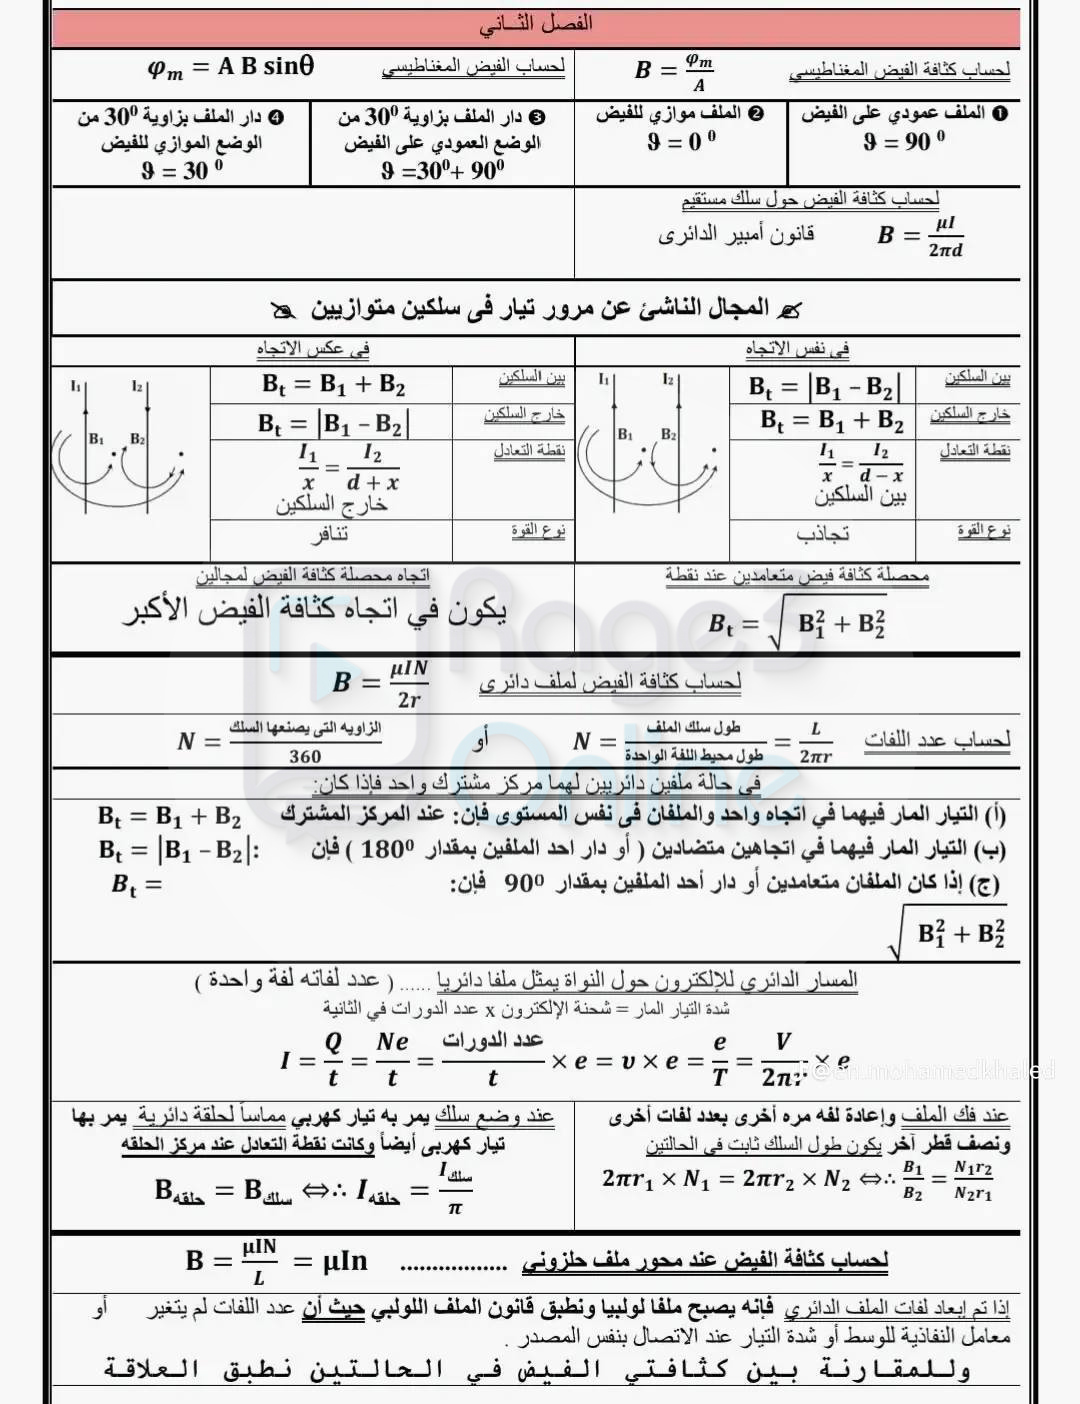 الفصل الثاني
لحساب كثافة الفيض المغناطيسي B = φm/A
لحساب الفيض المغناطيسي φm = A B sinθ
❶ الملف عمودي على الفيض
ϑ = 90 ⁰
❷ الملف موازي للفيض
ϑ = 0 ⁰
❸ دار الملف بزاوية 30⁰ من
الوضع العمودي على الفيض
ϑ =30⁰+ 90⁰
❹ دار الملف بزاوية 30⁰ من
الوضع الموازي للفيض
ϑ = 30 ⁰
لحساب كثافة الفيض حول سلك مستقيم
B = μI/2πd قانون أمبير الدائرى
المجال الناشئ عن مرور تيار فى سلكين متوازيين
فى نفس الاتجاه
بين السلكين Bt = |B1 – B2|
خارج السلكين Bt = B1 + B2
نقطة التعادل I1/x = I2/(d – x)
بين السلكين
نوع القوة تجاذب
I1 I2
B1 B2
فى عكس الاتجاه
بين السلكين Bt = B1 + B2
خارج السلكين Bt = |B1 – B2|
نقطة التعادل I1/x = I2/(d + x)
خارج السلكين
نوع القوة تنافر
I1 I2
B1 B2
محصلة كثافة فيض متعامدين عند نقطة
Bt = √(B1² + B2²)
اتجاه محصلة كثافة الفيض لمجالين
يكون في اتجاه كثافة الفيض الأكبر
لحساب كثافة الفيض لملف دائرى B = μIN/2r
لحساب عدد اللفات N = طول سلك الملف/طول محيط اللفة الواحدة = L/2πr أو N = الزاويه التى يصنعها السلك/360
في حالة ملفين دائريين لهما مركز مشترك واحد فإذا كان:
(أ) التيار المار فيهما في اتجاه واحد والملفان فى نفس المستوى فإن: عند المركز المشترك Bt = B1 + B2
(ب) التيار المار فيهما في اتجاهين متضادين ( أو دار احد الملفين بمقدار 180⁰ ) فإن :Bt = |B1 – B2|
(ج) إذا كان الملفان متعامدين أو دار أحد الملفين بمقدار 90⁰ فإن: Bt =
√(B1² + B2²)
المسار الدائري للإلكترون حول النواة يمثل ملفا دائريا ...... ( عدد لفاته لفة واحدة )
شدة التيار المار = شحنة الإلكترون x عدد الدورات في الثانية
I = Q/t = Ne/t = عدد الدورات/t × e = υ × e = e/T = V/2πr × e
@en.mohamedkhaled
عند فك الملف وإعادة لفه مره أخرى بعدد لفات أخرى
ونصف قطر آخر يكون طول السلك ثابت في الحالتين
2πr1 × N1 = 2πr2 × N2 ⇔∴ B1/B2 = N1r2/N2r1
عند وضع سلك يمر به تيار كهربي مماساً لحلقة دائرية يمر بها
تيار كهربى أيضاً وكانت نقطة التعادل عند مركز الحلقه
Bحلقه = Bسلك ⇔∴ Iحلقه = Iسلك/π
لحساب كثافة الفيض عند محور ملف حلزوني ................. B = μIN/L = μIn
إذا تم إبعاد لفات الملف الدائري فإنه يصبح ملفا لولبيا ونطبق قانون الملف اللولبي حيث أن عدد اللفات لم يتغير أو
معامل النفاذية للوسط أو شدة التيار عند الاتصال بنفس المصدر .
وللمقارنة بين كثافتي الفيض في الحالتين نطبق العلاقة
Online